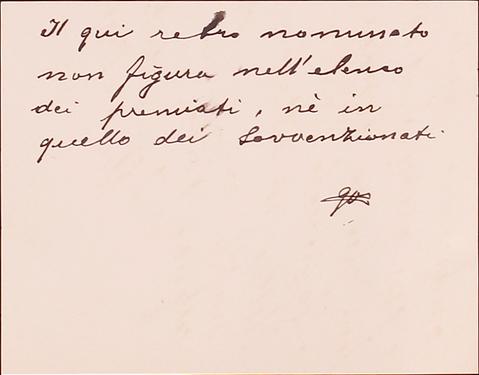 Il qui retro nominato
non figura nell'elenco
dei premiati, nè in
quello dei Sovvenzionati.